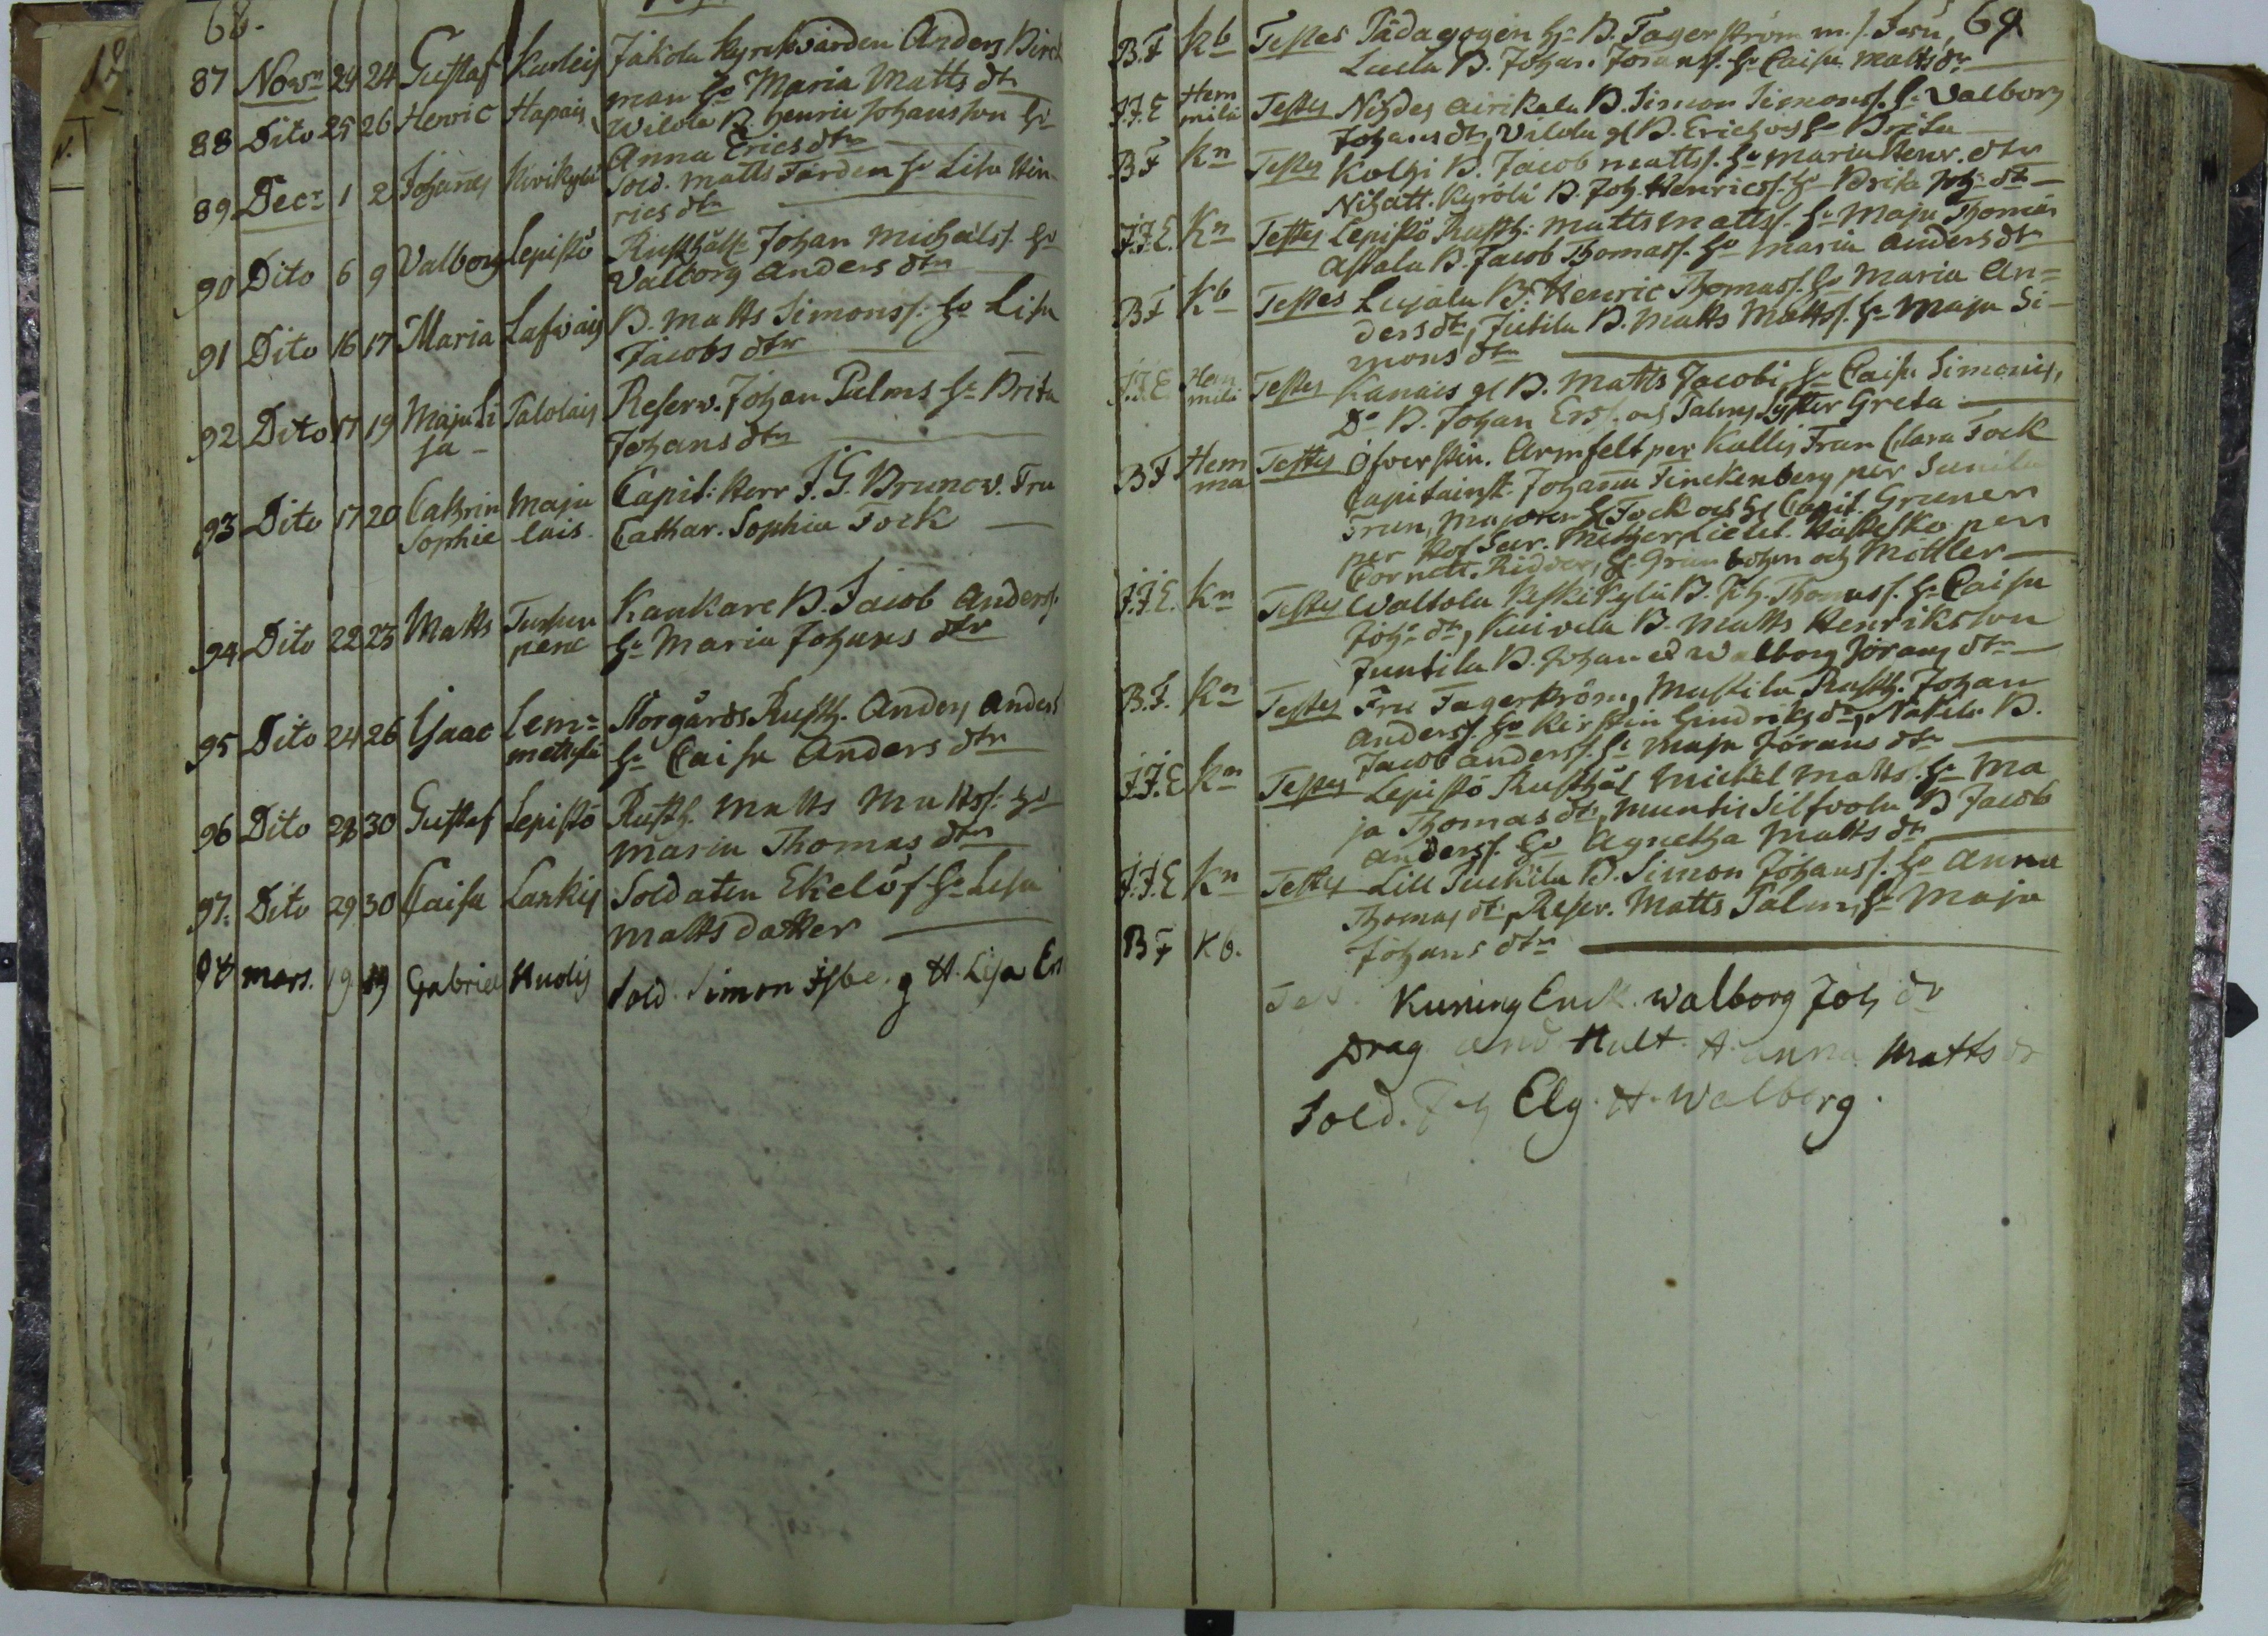 68.
87 Novr 24 24 Gustaf Karleis Jakola Kyrkvärden Anders Birck
man hu Maria Matts dtr
88 Dito 25 26 Henric Hapais Wilola B. Henric Johansson hu
Anna Ericsdtr
89 Decr 1 2 Johannes Kivikylä Sold. Matts Färden hu Lisa Hin
rics dtr
90 Dito 6 9 Valborg Lepistö Rusthåll. Johan Michälss. hu
Valborg Anders dtr
91 Dito 16 17 Maria Lafvais B. Matts Simonss. hu Lisa
Jacobs dtr
92 Dito 17 19 Maja Li Talolais Reserv. Johan Palms hu Brita
sa - Johans dtr
93 Dito 17 20 Cathrin Maju Capit: Herr J. G. Brunow. Fru
Sophie lais. Cathar. Sophia Fock
94 Dito 22 23 Matts Kaukare B. Jacob Anderss.
pene hu Maria Johans dtr
95 Dito 24 26 Isaac Lem= Storgårds Rusth. Anders Anders
hu Caisa Anders dtr
96 Dito 28 30 Gustaf Lepistö Rusth. Matts Mattss. hu
Maria Thomas dtr
97. Dito 29 30 Caisa Lankis Soldaten Ekelöf hu Lisa
Matts dotter
98 mars. 19 19 Gabriel Huolis Sold. Simon g H. Lisa Ers
69
B.F Kb Testes Pädagogen Hr B. Fagerström m.
B. Johan Joranss. hu Caisa Matts dr
J.J.E Hem Testes Nihdes Airikala B. Simon Simonss. hu Valborg
milä Johans dtr, Valola gl B. Erich och hu Brita
BF Kn Testes Kolhi B. Jacob Mattss. hu Maria Henr. dtr
Nihatt. Kyrölä B. Joh. Henricss. hu Brita Joh: dtr
J.J.E. Kn Testes Lepistö Rusth: Matts Mattss. hu Maja Thomas
Astala B. Jacob Thomass. hu Maria Anders dtr
BF Kb Testes Lujala B. Henric Thomass. hu Maria An=
ders dtr, Jutila B. Matts Mattss. hu Maja Si-
mons dtr
J.J.E Hem Testes Kanais gl B. Matts Jacobi, hu Caisa Simonis,
milä Do B. Johan Erss. och Palms Syster Greta
BF Hem Testes Öfverstin. Armfelt per Kallis Frun Clara Fock
ma Capitainsk. Johanna Finckenberg per Sunila
Frun, Majoren H Fock och H Capit. Gruener
per Hof Secr. Metzer,
Cornett. Ridder, H. Granbohm och Möttler
J.J.E. Kn Testes Waltola Keskikylä B. Joh. Thomass. hu Caisa
Joh: dtr, Kuivela B. Matts Henriksson
Juntila B. Johan et Walborg Jörans dtr
B.F. Kn Testes Fru Fagerström, Mastila Rusth. Johan
Anderss. hu Kirstin Hindriks dtr, Näkilä B.
Jacob Anderss. hu Maja Jörans dtr
J.J.E Kn Testes Lepistö Rusthål Mickel Matts. hu Ma
ja Thomas dtr, Muntis Silfvola B Jacob
Anderss. hu Agnetha Matts dtr
J.J.E Kn Testes Lill B. Simon Johanss. hu Anna
Thomas dtr, Reserv. Matts Palm, hu Maja
BF Kb. Johans dtr
Test. Kuning Enck. Walborg Joh dr
Drag And Hult. H Anna Matts dr
Sold. Joh Elg. H. Walborg.